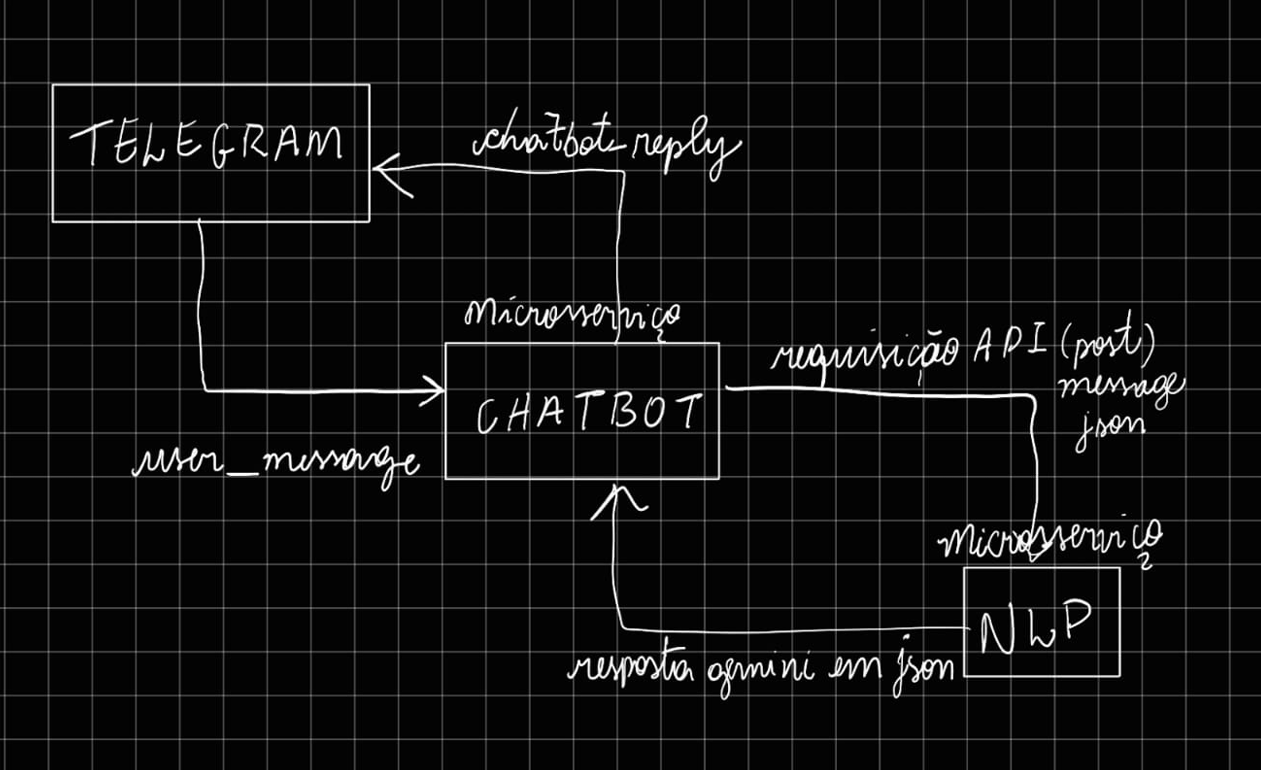 TELEGRAM
chatbot_reply
Microsserviço
requisição API (post)
message
json
CHATBOT
user_message
Microsserviço
NLP
resposta gemini em json